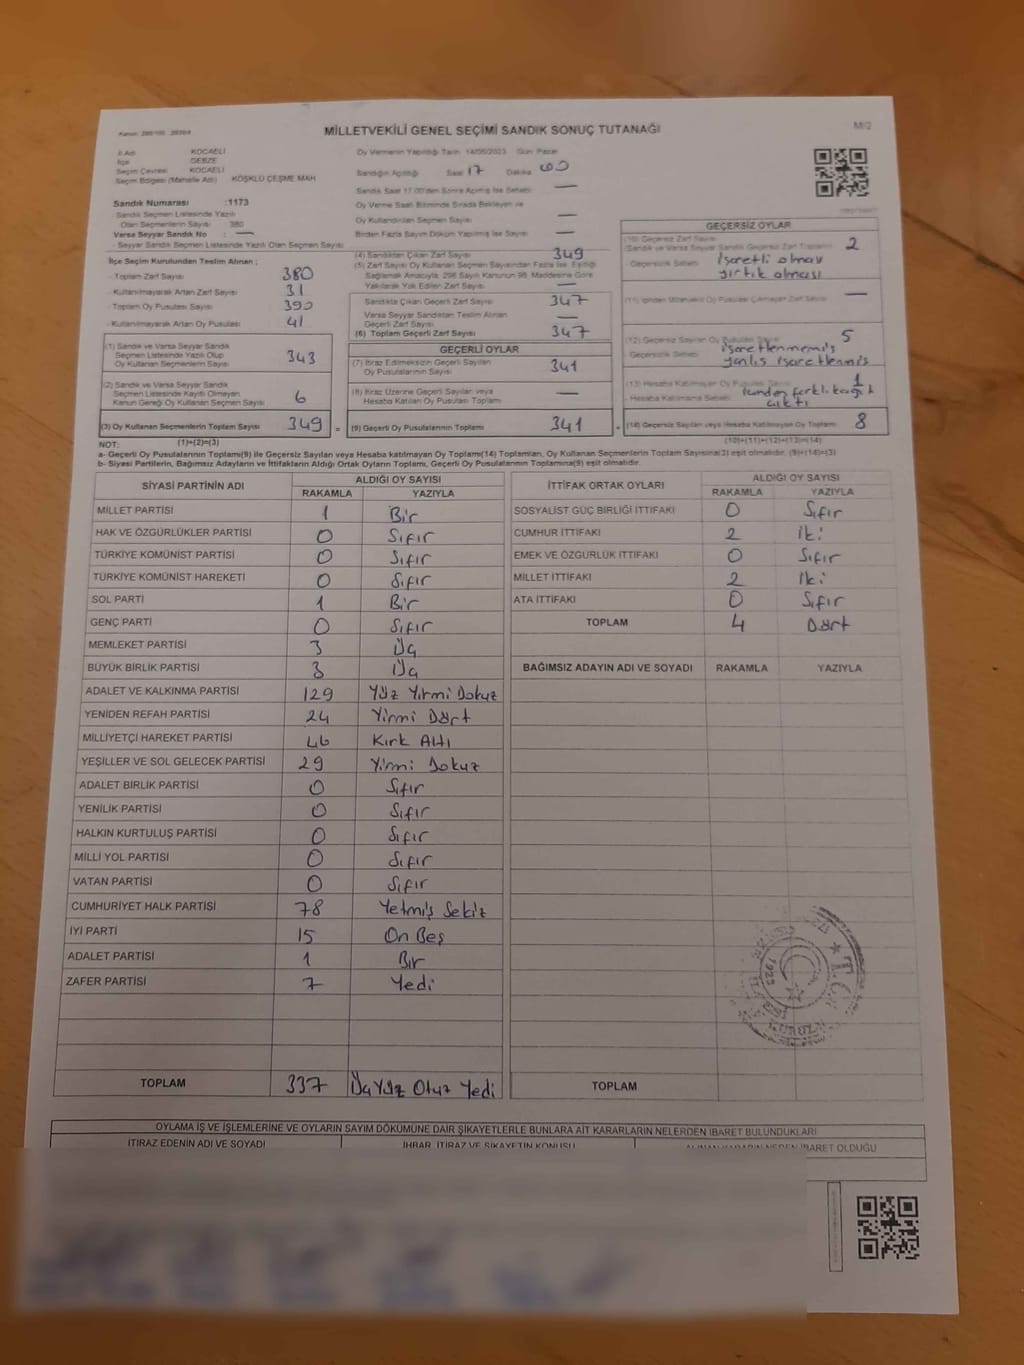 MİLLETVEKİLİ GENEL SEÇİMİ SANDIK SONUÇ TUTANAĞI
M/2
İl Adı KOCAELİ
İlçe GEBZE
Seçim Çevresi KOCAELİ
Seçim Bölgesi (Mahalle Adı) KÖŞKLÜ ÇEŞME MAH.
Sandık Numarası :1173
- Sandık Seçmen Listesinde Yazılı
Olan Seçmenlerin Sayısı 380
Varsa Seyyar Sandık No : —
- Seyyar Sandık Seçmen Listesinde Yazılı Olan Seçmen Sayısı
İlçe Seçim Kurulundan Teslim Alınan ;
- Toplam Zarf Sayısı 380
- Kullanılmayarak Artan Zarf Sayısı 31
- Toplam Oy Pusulası Sayısı 390
- Kullanılmayarak Artan Oy Pusulası 41
(1) Sandık ve Varsa Seyyar Sandık
Seçmen Listesinde Yazılı Olup
Oy Kullanan Seçmenlerin Sayısı 343
(2) Sandık ve Varsa Seyyar Sandık
Seçmen Listesinde Kayıtlı Olmayan
Kanun Gereği Oy Kullanan Seçmen Sayısı 6
(3) Oy Kullanan Seçmenlerin Toplam Sayısı 349
Oy Vermenin Yapıldığı Tarih 14/05/2023 Gün Pazar
Sandığın Açıldığı Saat 17 Dakika 00
Sandık Saat 17.00'den Sonra Açılmış İse Sebebi —
Oy Verme Saati Bitiminde Sırada Bekleyen ve
Oy Kullandırılan Seçmen Sayısı —
Birden Fazla Sayım Döküm Yapılmış İse Sayısı —
(4) Sandıktan Çıkan Zarf Sayısı 349
(5) Zarf Sayısı Oy Kullanan Seçmen Sayısından Fazla İse, Eşitliği
Sağlamak Amacıyla, 298 Sayılı Kanunun 98. Maddesine Göre
Yakılarak Yok Edilen Zarf Sayısı —
Sandıkta Çıkan Geçerli Zarf Sayısı 347
Varsa Seyyar Sandıktan Teslim Alınan
Geçerli Zarf Sayısı —
(6) Toplam Geçerli Zarf Sayısı 347
GEÇERLİ OYLAR
(7) İtiraz Edilmeksizin Geçerli Sayılan
Oy Pusulalarının Sayısı 341
(8) İtiraz Üzerine Geçerli Sayılan veya
Hesaba Katılan Oy Pusulası Toplamı —
= (9) Geçerli Oy Pusulalarının Toplamı 341
GEÇERSİZ OYLAR
(10) Geçersiz Zarf Sayısı
(Sandık ve Varsa Seyyar Sandık Geçersiz Zarf Toplamı) 2
- Geçersizlik Sebebi İşaretli olması
yırtık olması
—
(12) Geçersiz Sayılan Oy Pusulası Sayısı 5
Geçersizlik Sebebi işaretlenmemiş
yanlış işaretlenmiş
(13) Hesaba Katılmayan Oy Pusulası Sayısı 1
- Hesaba Katılmama Sebebi içinden farklı kağıt
çıktı
+ (14) Geçersiz Sayılan veya Hesaba Katılmayan Oy Toplamı 8
NOT: (1)+(2)=(3) (10)+(11)+(12)+(13)=(14)
a- Geçerli Oy Pusulalarının Toplamı(9) ile Geçersiz Sayılan veya Hesaba katılmayan Oy Toplamı(14) Toplamları, Oy Kullanan Seçmenlerin Toplam Sayısına(3) eşit olmalıdır. (9)+(14)=(3)
b- Siyasi Partilerin, Bağımsız Adayların ve İttifakların Aldığı Ortak Oyların Toplamı, Geçerli Oy Pusulalarının Toplamına(9) eşit olmalıdır.
SİYASİ PARTİNİN ADI ALDIĞI OY SAYISI
RAKAMLA YAZIYLA
MİLLET PARTİSİ 1 Bir
HAK VE ÖZGÜRLÜKLER PARTİSİ 0 Sıfır
TÜRKİYE KOMÜNİST PARTİSİ 0 Sıfır
TÜRKİYE KOMÜNİST HAREKETİ 0 Sıfır
SOL PARTİ 1 Bir
GENÇ PARTİ 0 Sıfır
MEMLEKET PARTİSİ 3 Üç
BÜYÜK BİRLİK PARTİSİ 3 Üç
ADALET VE KALKINMA PARTİSİ 129 Yüz Yirmi Dokuz
YENİDEN REFAH PARTİSİ 24 Yirmi Dört
MİLLİYETÇİ HAREKET PARTİSİ 46 Kırk Altı
YEŞİLLER VE SOL GELECEK PARTİSİ 29 Yirmi Dokuz
ADALET BİRLİK PARTİSİ 0 Sıfır
YENİLİK PARTİSİ 0 Sıfır
HALKIN KURTULUŞ PARTİSİ 0 Sıfır
MİLLİ YOL PARTİSİ 0 Sıfır
VATAN PARTİSİ 0 Sıfır
CUMHURİYET HALK PARTİSİ 78 Yetmiş Sekiz
İYİ PARTİ 15 On Beş
ADALET PARTİSİ 1 Bir
ZAFER PARTİSİ 7 Yedi
TOPLAM 337 Üç Yüz Otuz Yedi
İTTİFAK ORTAK OYLARI ALDIĞI OY SAYISI
RAKAMLA YAZIYLA
SOSYALİST GÜÇ BİRLİĞİ İTTİFAKI 0 Sıfır
CUMHUR İTTİFAKI 2 İki
EMEK VE ÖZGÜRLÜK İTTİFAKI 0 Sıfır
MİLLET İTTİFAKI 2 İki
ATA İTTİFAKI 0 Sıfır
TOPLAM 4 Dört
BAĞIMSIZ ADAYIN ADI VE SOYADI RAKAMLA YAZIYLA
T.C.
1923
TOPLAM
OYLAMA İŞ VE İŞLEMLERİNE VE OYLARIN SAYIM DÖKÜMÜNE DAİR ŞİKAYETLERLE BUNLARA AİT KARARLARIN NELERDEN İBARET BULUNDUKLARI
İTİRAZ EDENİN ADI VE SOYADI İHBAR, İTİRAZ VE ŞİKAYETİN KONUSU ALINAN KARARIN NEDEN İBARET OLDUĞU